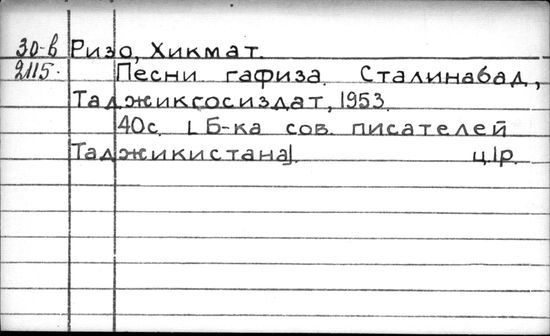 30-в Ризо, Хикмат.
2115. Песни гафиза. Сталинабад,
Таджикгосиздат, 1953.
40с. [Б-ка сов. писателей
Таджикистана]. ц.1р.